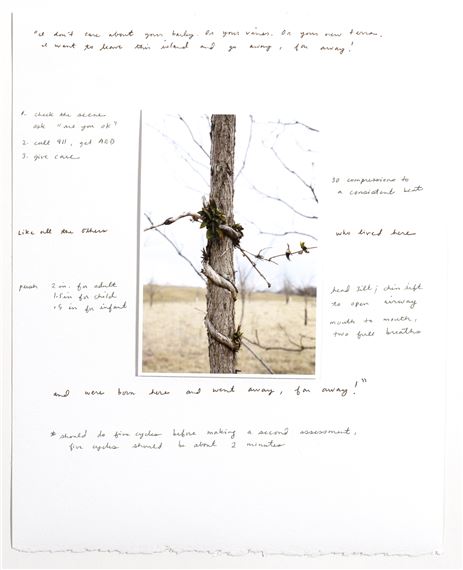 "I don't care about your barley. Or your vines. Or your new
I want to leave this island and go away, far away!
1. check the scene
ask "are you ok"
2. call 911, get AED
3. give care
30 compressions to
a consistent beat
Like all the others
who lived here
push 2 in. for adult
1.5 in for child
head tilt; chin lift
to open airway
mouth to mouth,
two full breaths
and were born here and went away, far away!"
* should do five cycles before making a second assessment,
five cycles should be about 2 minutes